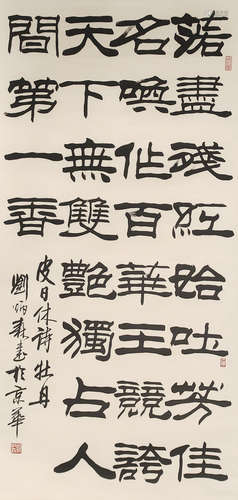 落盡殘紅始吐芳佳
名喚作百華王競誇
天下無雙艷獨占人
間第一香
皮日休詩牡丹
劉炳森書於京華